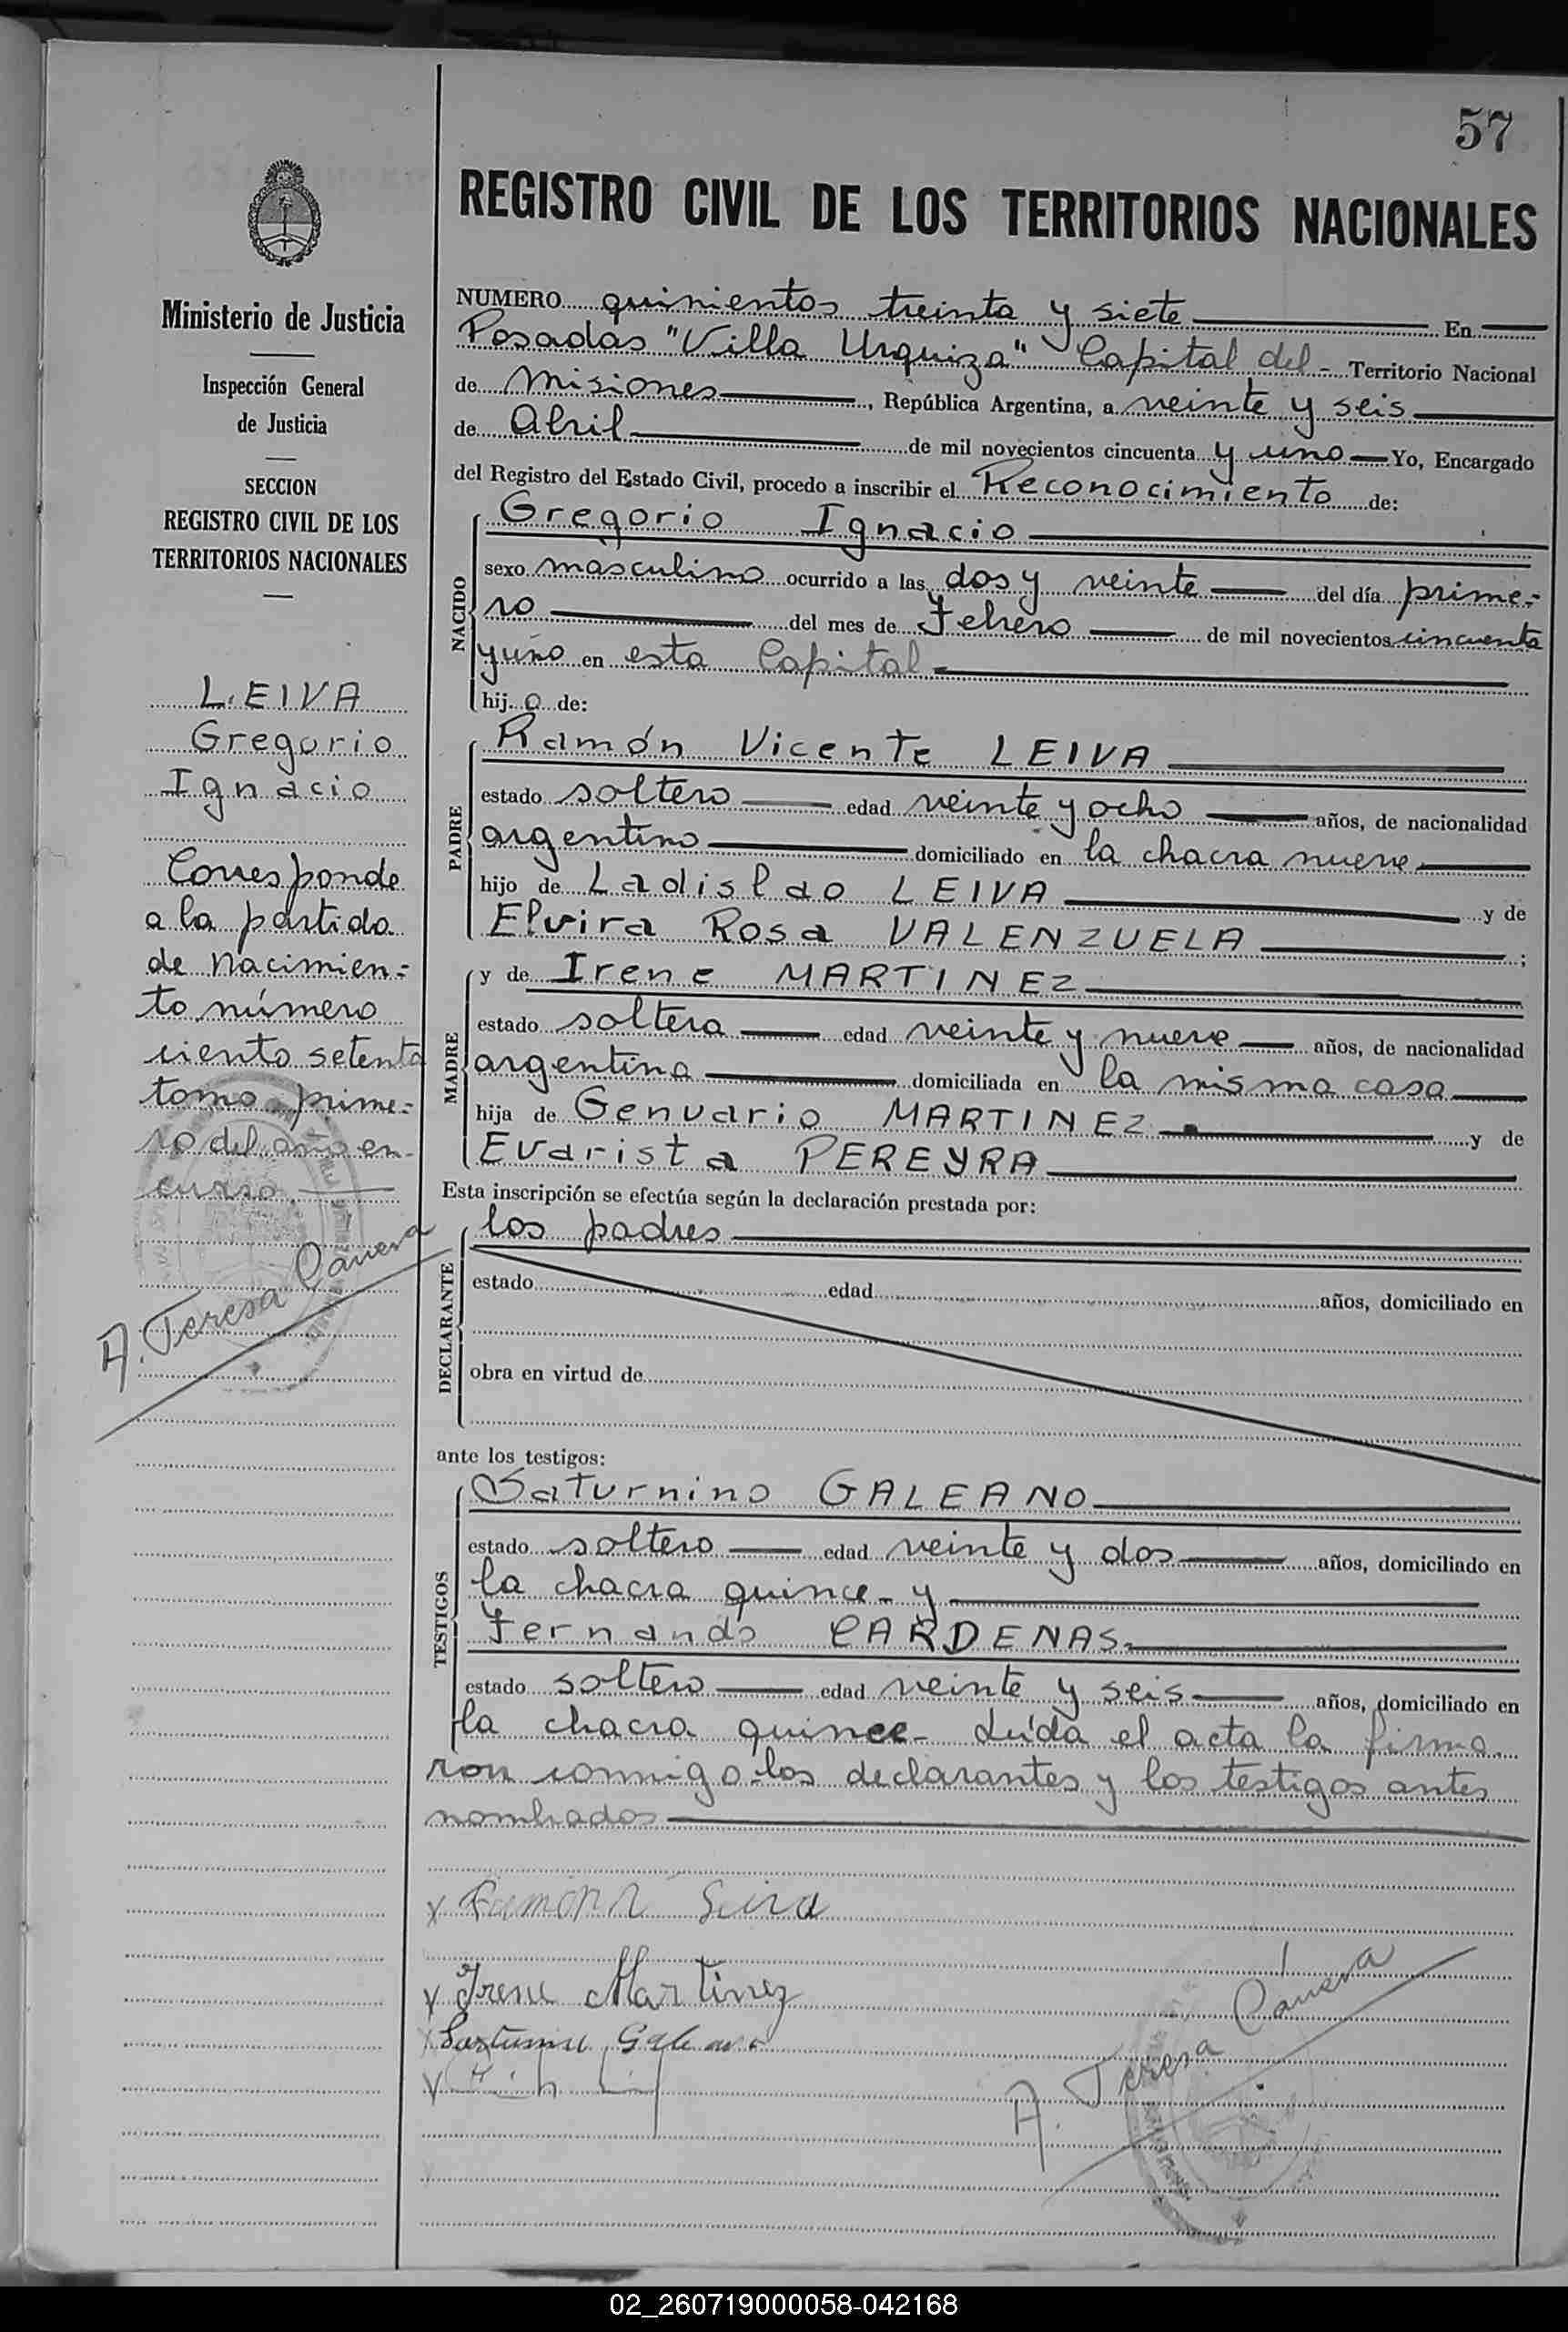 57
REGISTRO CIVIL DE LOS TERRITORIOS NACIONALES
Ministerio de Justicia
Inspección General
de Justicia
SECCION
REGISTRO CIVIL DE LOS
TERRITORIOS NACIONALES
LEIVA
Gregorio
Ignacio
Corresponde
a la partida
de nacimien=
to número
ciento setenta
tomo prime=
ro del año en
curso.
A. Teresa
NUMERO quinientos treinta y siete En
Posadas "Villa Urquiza" Capital del Territorio Nacional
de Misiones, República Argentina, a veinte y seis
de Abril de mil novecientos cincuenta y uno Yo, Encargado
del Registro del Estado Civil, procedo a inscribir el Reconocimiento de:
NACIDO
Gregorio Ignacio
sexo masculino ocurrido a las dos y veinte del día prime=
ro del mes de Febrero de mil novecientos cincuenta
y uno en esta Capital
hijo de:
PADRE
Ramón Vicente LEIVA
estado soltero edad veinte y ocho años, de nacionalidad
argentino domiciliado en la chacra nueve
hijo de Ladislao LEIVA y de
Elvira Rosa VALENZUELA ;
MADRE
y de Irene MARTINEZ
estado soltera edad veinte y nueve años, de nacionalidad
argentina domiciliada en la misma casa
hija de Genuario MARTINEZ y de
Evarista PEREYRA
Esta inscripción se efectúa según la declaración prestada por:
DECLARANTE
los padres
estado edad años, domiciliado en
obra en virtud de
ante los testigos:
TESTIGOS
Saturnino GALEANO
estado soltero edad veinte y dos años, domiciliado en
la chacra quince - y
Fernando CARDENAS
estado soltero edad veinte y seis años, domiciliado en
la chacra quince - Leída el acta la firma
ron conmigo los declarantes y los testigos antes
nombrados
x Ramón Leiva
x Irene Martinez
x Galeano
A. Teresa
02_260719000058-042168